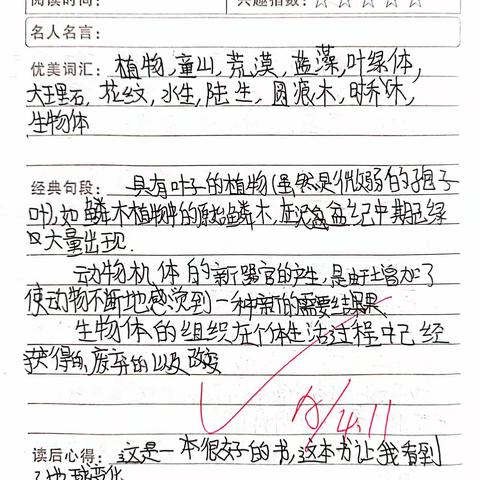 阅读时间： 兴趣指数：☆☆☆☆☆
名人名言：
优美词汇：植物，童山，荒漠，蓝藻，叶绿体，
大王里石，拉纹，水生，陆生，圆浪木，时乔木，
生物体
经典句段：具有叶子的植物（虽然是微弱的孢子
叶），如鳞木植物的原始鳞木，在泥盆纪中期已经
大量出现．
动物机体的新器官的产生，是由于增加了
使动物不断地感觉到一种新的需要结果
生物体的组织在个体生活过程中已经
获得的，废弃的以及改变
A/4.11
读后心得：这是一本很好的书，这本书让我看到
了地球变化